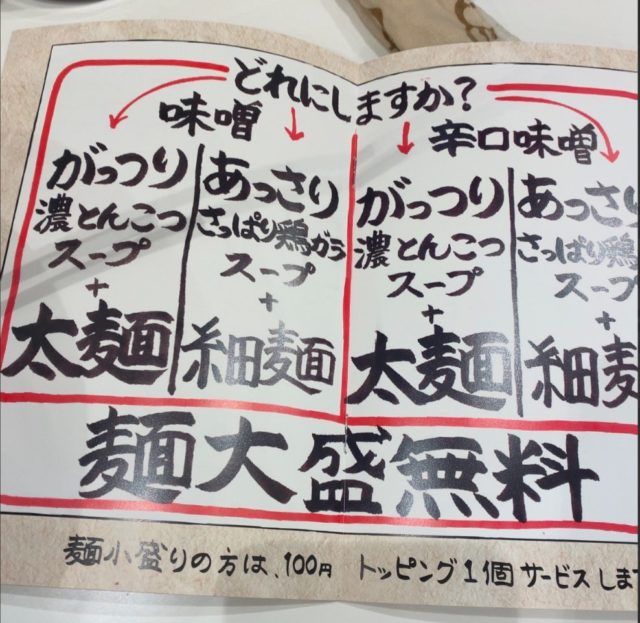 どれにしますか?
味噌
がっつり
濃とんこつ
スープ
+
太麺
あっさり
さっぱり鶏ガラ
スープ
+
細麺
辛口味噌
がっつり
濃とんこつ
スープ
+
太麺
あっさり
さっぱり鶏
スープ
+
細麺
麺大盛無料
麺小盛りの方は、100円 トッピング1個サービスしま